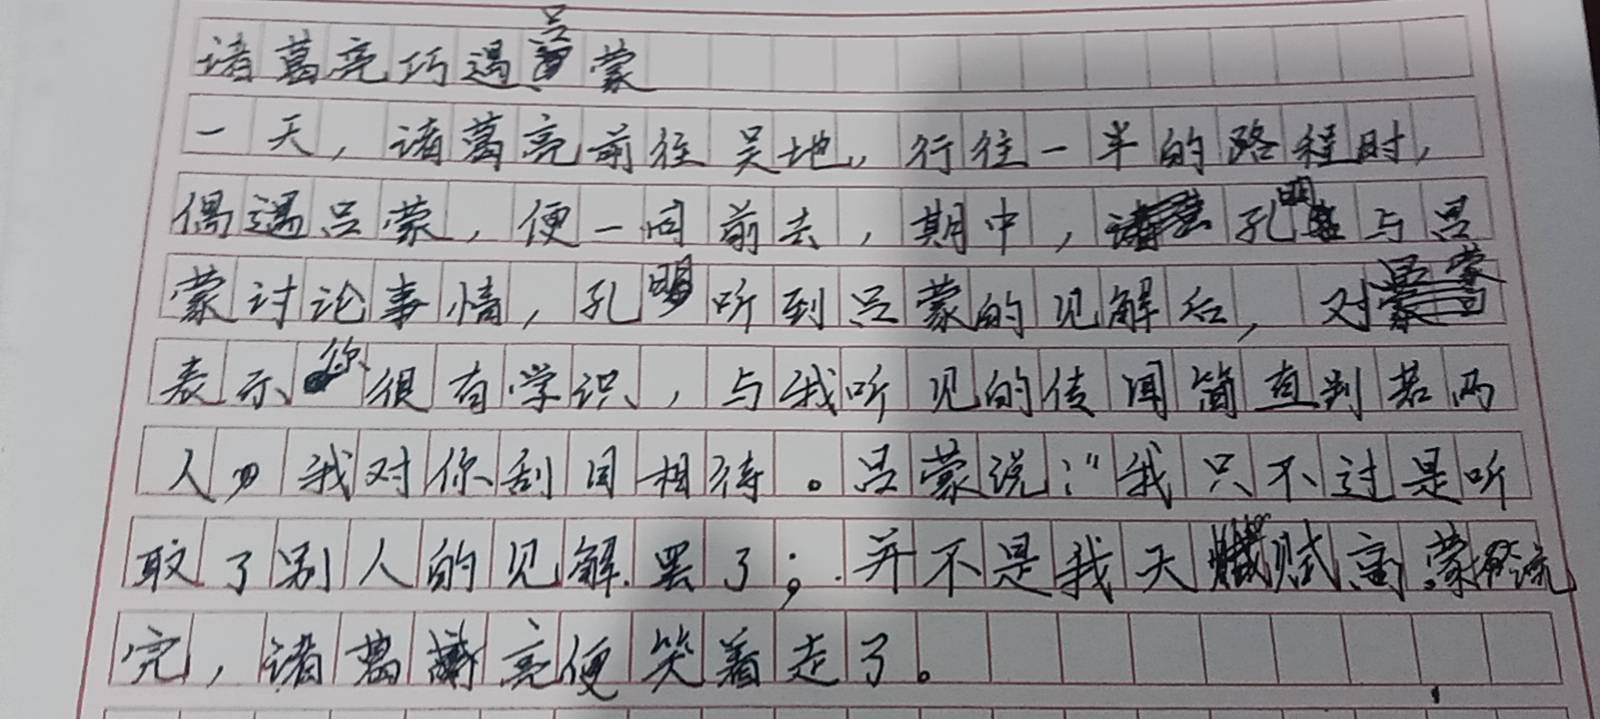 诸葛亮巧遇吕蒙
一天，诸葛亮前往吴地，行往一半的路程时，
偶遇吕蒙，便一同前去，期中，孔明与吕
蒙讨论事情，孔明听到吕蒙的见解后，对吕蒙
表示你很有学识，与我听见的传闻简直判若两
人，我对你刮目相待。吕蒙说：“我只不过是听
取了别人的见解罢了；并不是我天赋高.蒙说
完，诸葛亮便笑着走了。